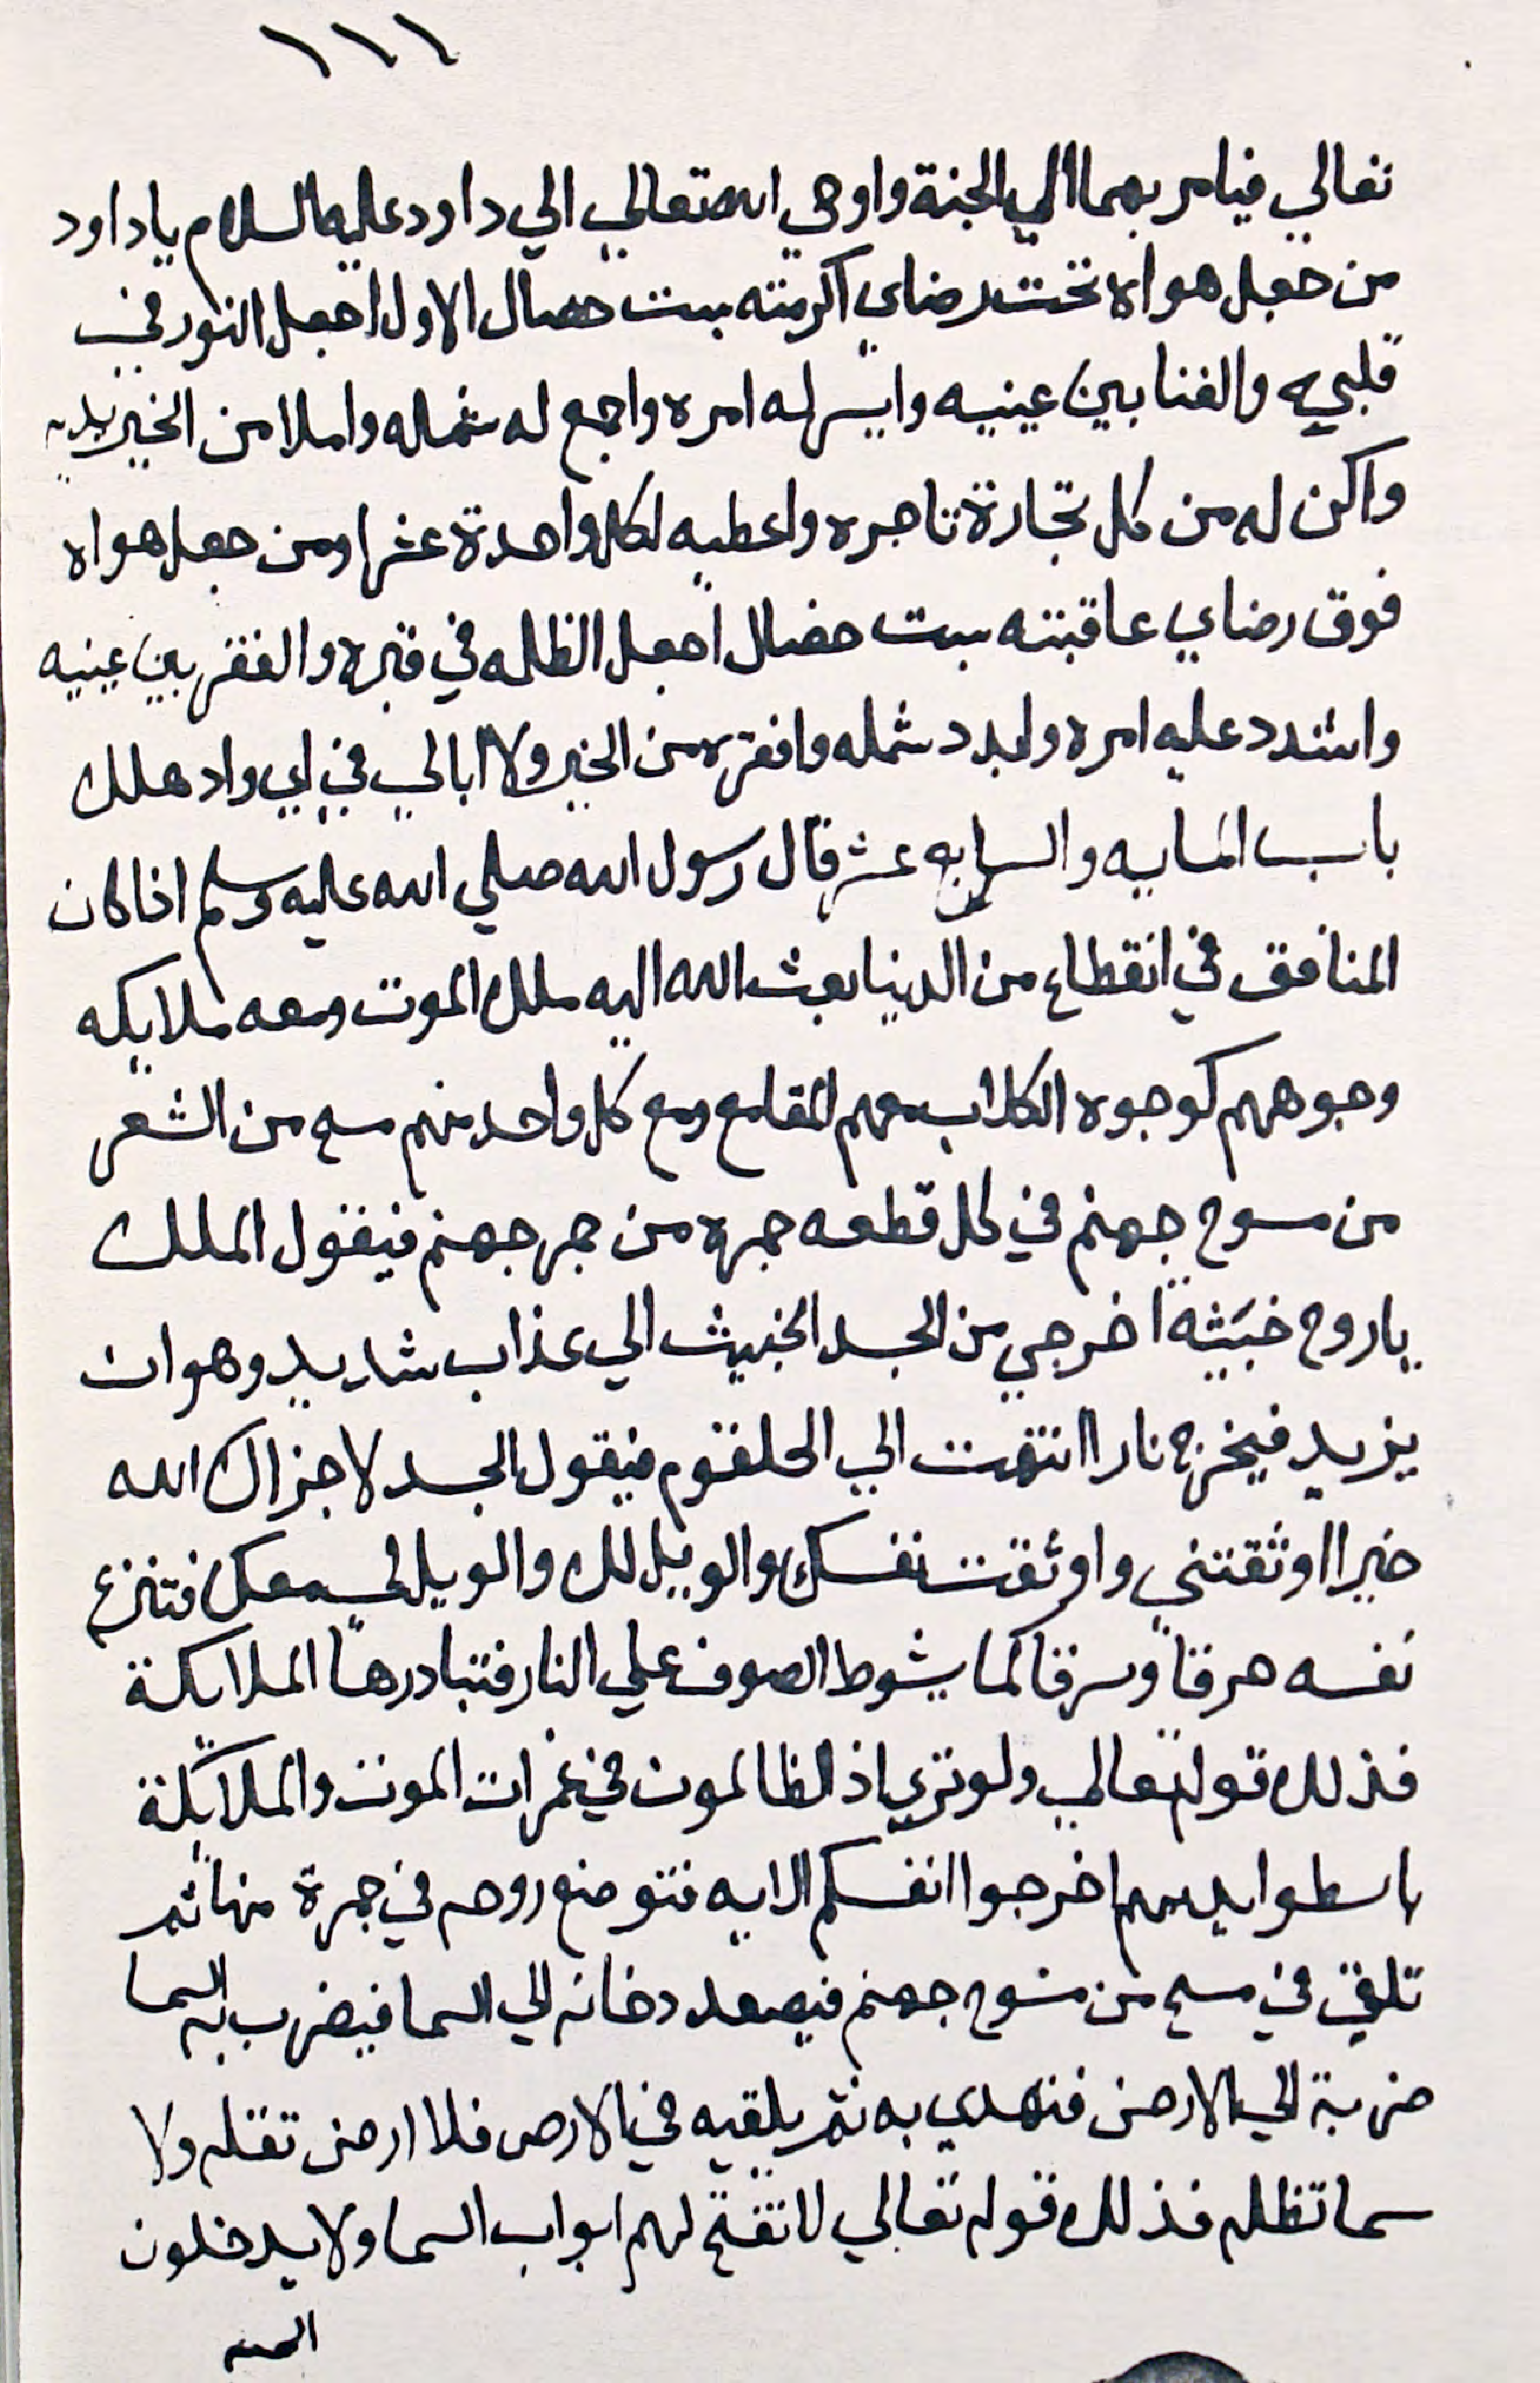 ١١١
تعالي فيامر بهما الي الجنة واوحي الله تعالي الي داود عليه السلام يا داود
من جعل هواه تحت رضاي اكرمته بست خصال الاول اجعل النور في
قلبه والغنا بين عينيه وايسر له امره واجمع له شمله واملا من الخير يديه
واكن له من كل تجارة تاجره واعطيه لكل واحدة عشرا ومن جعل هواه
فوق رضاي عاقبته بست خصال اجعل الظلمه في قبره والفقر بين عينيه
واشدد عليه امره وابدد شمله وافقره من الخير ولا ابالي في اي واد هلك
باب المايه والسابع عشر قال رسول الله صلي الله عليه وسلم اذا كان
المنافق في انقطاع من الدنيا بعث الله اليه ملك الموت ومعه ملايكه
وجوههم كوجوه الكلاب معهم المقامع ومع كل واحد منهم مسح من الشعر
من مسوح جهنم في كل قطعه جمره من جمر جهنم فيقول الملك
يا روح خبيثة اخرجي من الجسد الخبيث الي عذاب شديد وهوان
يزيد فيخرج نارا انتهت الي الحلقوم فيقول الجسد لا جزاك الله
خيرا اوثقتني واوثقت نفسك والويل لك والويل لي معك فتنزع
نفسه حرقا وسرقا كما يشوط الصوف علي النار فتبادرها الملايكة
فذلك قوله تعالي ولو تري اذ الظالمون في غمرات الموت والملايكة
باسطوا ايديهم اخرجوا انفسكم الايه فتوضع روحه في جمرة منها ثم
تلقي في مسح من مسوح جهنم فيصعد دخانه الي السما فيضرب به السما
ضربة الي الارض فتهدي به ثم يلقيه في الارض فلا ارض تقله ولا
سما تظله فذلك قوله تعالي لا تفتح لهم ابواب السما ولا يدخلون
الجنه